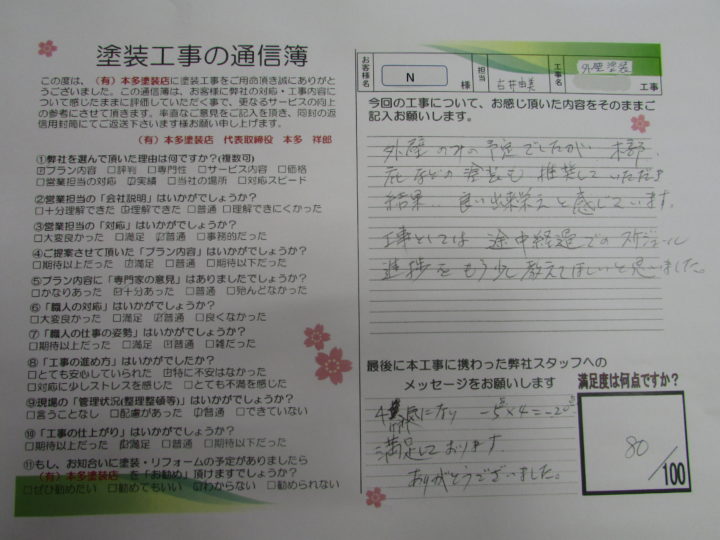 塗装工事の通信簿
この度は、(有)本多塗装店に塗装工事をご用命頂き誠にありがと
うございました。この通信簿は、お客様に弊社の対応・工事内容に
ついて感じたままに評価していただく事で、更なるサービスの向上
の参考にさせて頂きます。率直なご意見をご記入を頂き、同封の返
信用封筒にてご返送下さいます様お願い申し上げます。
(有)本多塗装店 代表取締役 本多 祥郎
①弊社を選んで頂いた理由は何ですか?(複数可)
☑プラン内容 □評判 □専門性 □サービス内容 □価格
□営業担当の対応 ☑実績 □当社の場所 □対応スピード
②営業担当の「会社説明」はいかがでしたか?
□十分理解できた ☑理解できた □普通 □理解できにくかった
③営業担当の「対応」はいかがでしょうか?
□大変良かった □満足 ☑普通 □事務的だった
④ご提案させて頂いた「プラン内容」はいかがでしょうか?
□期待以上だった ☑満足 □普通 □期待以下だった
⑤プラン内容に「専門家の意見」はありましたでしょうか?
□かなりあった ☑十分あった □普通 □殆んどなかった
⑥「職人の対応」はいかがでしょうか?
□大変良かった □満足 ☑普通 □良くなかった
⑦「職人の仕事の姿勢」はいかがでしょうか?
□期待以上だった □満足 ☑普通 □雑だった
⑧「工事の進め方」はいかがでしたか?
□とても安心していられた ☑特に不安はなかった
□対応に少しストレスを感じた □とても不満を感じた
⑨現場の「管理状況(整理整頓等)」はいかがでしょうか?
□言うことなし □配慮があった ☑普通 □できていない
⑩「工事の仕上がり」はいかがでしょうか?
□期待以上だった ☑満足 □普通 □期待以下だった
⑪もし、お知合いに塗装・リフォームの予定がありましたら
(有)本多塗装店 を「お勧め」頂けますでしょうか?
□ぜひ勧めたい □勧めてもいい ☑わからない □勧められない
お客様名 N 様 担当 古井由美 工事名 外壁塗装 工事
今回の工事について、お感じ頂いた内容をそのままご
記入お願いします。
外壁のみの予定でしたが、木部、
庇などの塗装も推奨していただき
結果、良い出来栄えと感じています。
工事としては途中経過でのスケジュール
進捗をもう少し教えてほしいと思いました。
最後に本工事に携わった弊社スタッフへの
メッセージをお願いします
満足度は何点ですか?
になり -5点×4=-20点
満足しております。
ありがとうございました。
80
/100